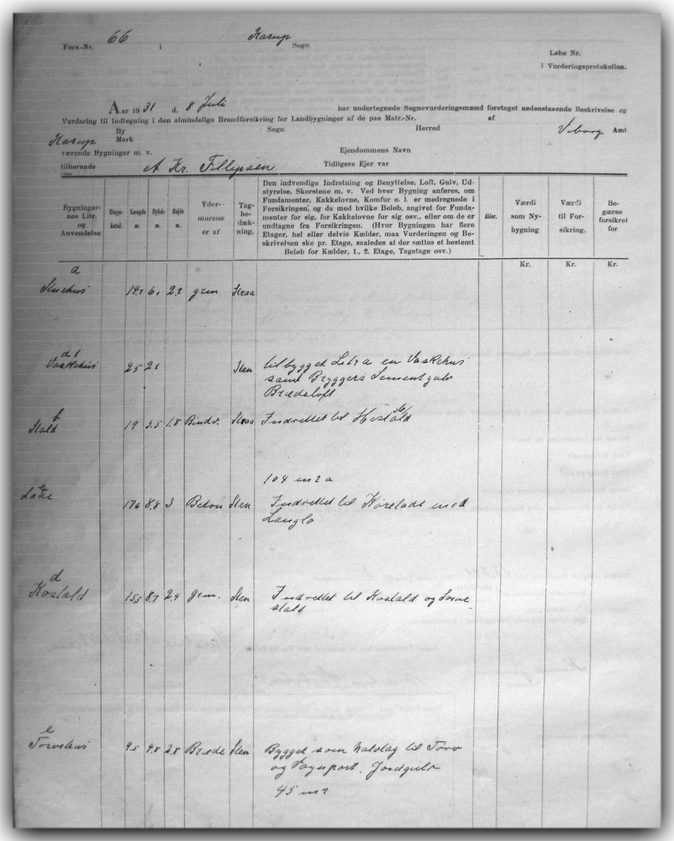 Fors.-Nr. 66 i Karup Sogn
Løbe Nr.
i Vurderingsprotokollen.
Aar 1931 d. 8 Juli har undertegnede Sognevurderingsmænd foretaget nedenstaaende Beskrivelse og
Vurdering til Indtegning i den almindelige Brandforsikring for Landbygninger af de paa Matr.-Nr. af
Karup By Mark Sogn Herred Viborg Amt
værende Bygninger m. v. Ejendommens Navn
tilhørende A Kr. Fillipsen Tidligere Ejer var
Bygningernes Litr. og Anvendelse
Etageantal.
Længde m.
Dybde m.
Højde m.
Ydermurene er af
Tagbedækning.
Den indvendige Indretning og Benyttelse, Loft, Gulv, Udstyrelse, Skorstene m. v. Ved hver Bygning anføres, om
Fundamenter, Kakkelovne, Komfur o. l. er medregnede i
Forsikringen, og da med hvilke Beløb, angivet for Fundamenter for sig, for Kakkelovne for sig osv., eller om de er
undtagne fra Forsikringen. (Hvor Bygningen har flere
Etager, hel eller delvis Kælder, maa Vurderingen og Beskrivelsen ske pr. Etage, saaledes at der sættes et bestemt
Beløb for Kælder, 1., 2. Etage, Tagetage osv.)
Værdi som Nybygning
Værdi til Forsikring.
Begæres forsikret for
Kr. Kr. Kr.
a
Stuehus grm Straa
Vaskehus 25 Sten tilbygget Litr a en Vaskehus
samt Bryggers Sementgulv
Brædeloft
b
Stald 19 5.5 1.8 Bindv. Straa Indrettet til Hestald
104 m2 a
Lade 176 8.8 3 Beton Sten Indrettet til Kørelade med
Langlo
d
Kostald 155 8.7 2.4 grm. Sten Indrettet til Kostald og
stald
e
Tørvehus 9.5 4.8 2.8 Bræde Sten Bygget som halvtag til Tørv
og Vognport. Jordgulv
45 m2